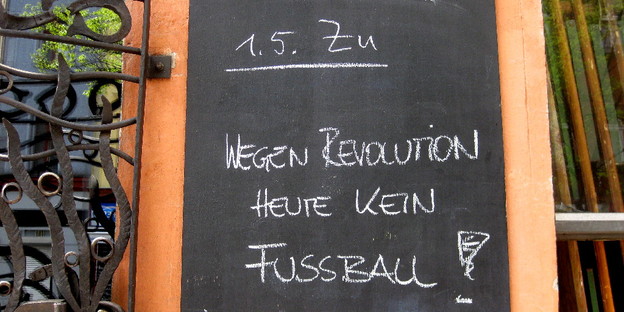 1.5. Zu
WEGEN REVOLUTION
HEUTE KEIN
FUSSBALL !